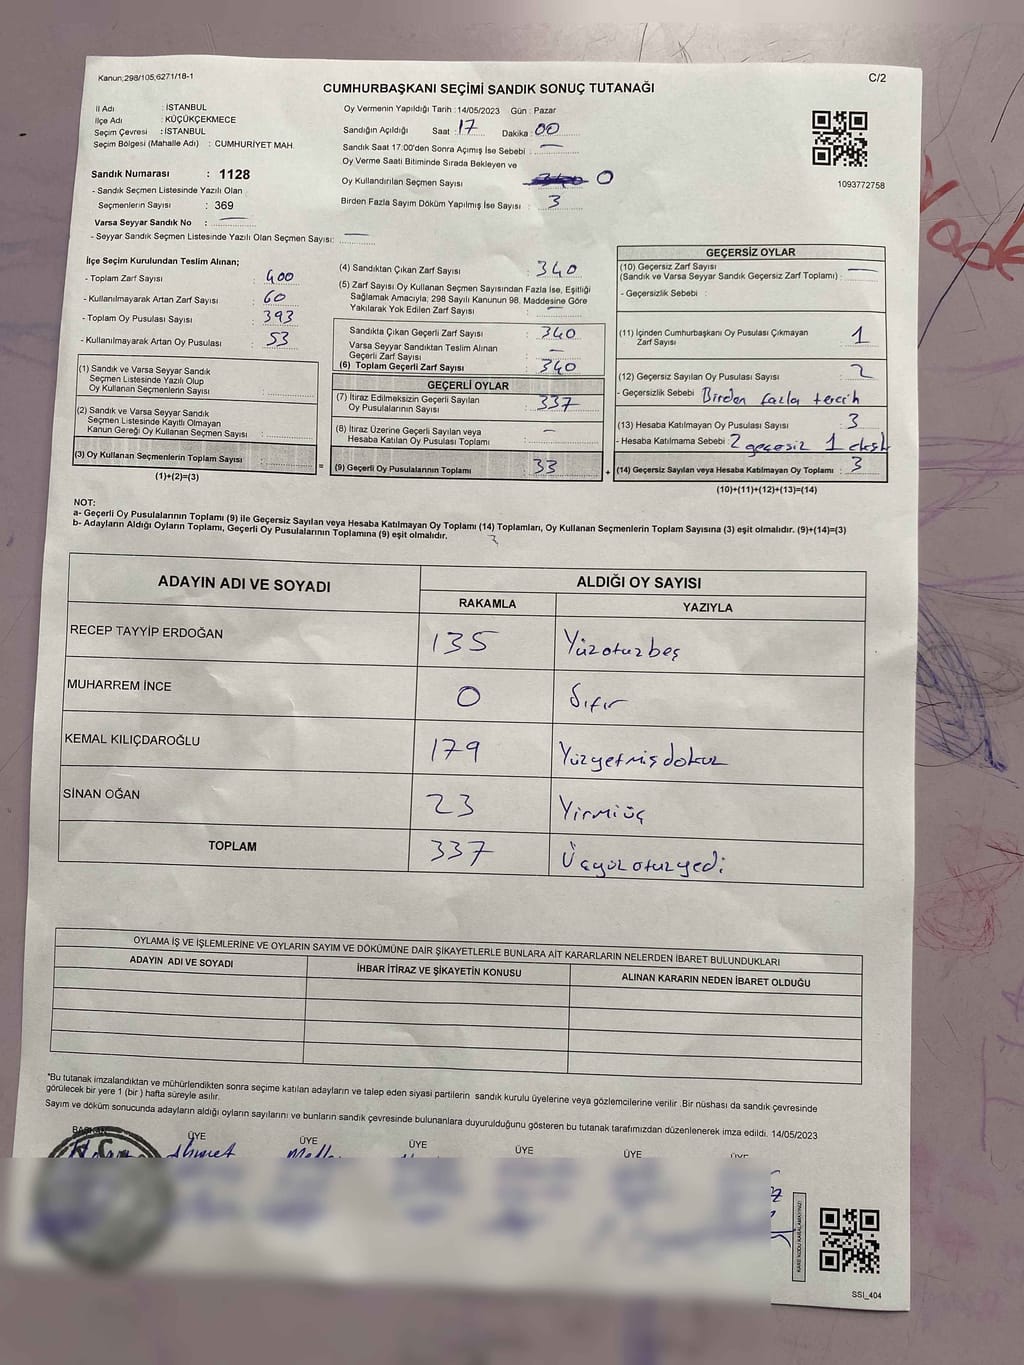 Kanun;298/105,6271/18-1
C/2
CUMHURBAŞKANI SEÇİMİ SANDIK SONUÇ TUTANAĞI
İl Adı : İSTANBUL
İlçe Adı : KÜÇÜKÇEKMECE
Seçim Çevresi : İSTANBUL
Seçim Bölgesi (Mahalle Adı) : CUMHURİYET MAH.
Sandık Numarası : 1128
- Sandık Seçmen Listesinde Yazılı Olan
Seçmenlerin Sayısı : 369
Varsa Seyyar Sandık No :
- Seyyar Sandık Seçmen Listesinde Yazılı Olan Seçmen Sayısı:
Oy Vermenin Yapıldığı Tarih :14/05/2023 Gün : Pazar
Sandığın Açıldığı Saat : 17 Dakika : 00
Sandık Saat 17:00'den Sonra Açımış İse Sebebi : —
Oy Verme Saati Bitiminde Sırada Bekleyen ve
Oy Kullandırılan Seçmen Sayısı 0
Birden Fazla Sayım Döküm Yapılmış İse Sayısı : 3
1093772758
İlçe Seçim Kurulundan Teslim Alınan;
- Toplam Zarf Sayısı : 400
- Kullanılmayarak Artan Zarf Sayısı : 60
- Toplam Oy Pusulası Sayısı : 393
- Kullanılmayarak Artan Oy Pusulası : 53
(1) Sandık ve Varsa Seyyar Sandık
Seçmen Listesinde Yazılı Olup
Oy Kullanan Seçmenlerin Sayısı :
(2) Sandık ve Varsa Seyyar Sandık
Seçmen Listesinde Kayıtlı Olmayan
Kanun Gereği Oy Kullanan Seçmen Sayısı :
(3) Oy Kullanan Seçmenlerin Toplam Sayısı :
(1)+(2)=(3)
(4) Sandıktan Çıkan Zarf Sayısı : 340
(5) Zarf Sayısı Oy Kullanan Seçmen Sayısından Fazla İse, Eşitliği
Sağlamak Amacıyla; 298 Sayılı Kanunun 98. Maddesine Göre
Yakılarak Yok Edilen Zarf Sayısı : —
Sandıkta Çıkan Geçerli Zarf Sayısı : 340
Varsa Seyyar Sandıktan Teslim Alınan
Geçerli Zarf Sayısı : —
(6) Toplam Geçerli Zarf Sayısı : 340
GEÇERLİ OYLAR
(7) İtiraz Edilmeksizin Geçerli Sayılan
Oy Pusulalarının Sayısı : 337
(8) İtiraz Üzerine Geçerli Sayılan veya
Hesaba Katılan Oy Pusulası Toplamı : —
= (9) Geçerli Oy Pusulalarının Toplamı : 33
GEÇERSİZ OYLAR
(10) Geçersiz Zarf Sayısı
(Sandık ve Varsa Seyyar Sandık Geçersiz Zarf Toplamı) : —
- Geçersizlik Sebebi :
(11) İçinden Cumhurbaşkanı Oy Pusulası Çıkmayan
Zarf Sayısı : 1
(12) Geçersiz Sayılan Oy Pusulası Sayısı : 2
- Geçersizlik Sebebi : Birden fazla tercih
(13) Hesaba Katılmayan Oy Pusulası Sayısı : 3
- Hesaba Katılmama Sebebi : 2 geçersiz 1
+ (14) Geçersiz Sayılan veya Hesaba Katılmayan Oy Toplamı : 3
(10)+(11)+(12)+(13)=(14)
NOT:
a- Geçerli Oy Pusulalarının Toplamı (9) ile Geçersiz Sayılan veya Hesaba Katılmayan Oy Toplamı (14) Toplamları, Oy Kullanan Seçmenlerin Toplam Sayısına (3) eşit olmalıdır. (9)+(14)=(3)
b- Adayların Aldığı Oyların Toplamı, Geçerli Oy Pusulalarının Toplamına (9) eşit olmalıdır.
ADAYIN ADI VE SOYADI ALDIĞI OY SAYISI
RAKAMLA YAZIYLA
RECEP TAYYİP ERDOĞAN 135 Yüzotuzbeş
MUHARREM İNCE 0 Sıfır
KEMAL KILIÇDAROĞLU 179 Yüzyetmişdokuz
SİNAN OĞAN 23 Yirmiüç
TOPLAM 337 Üçyüzotuzyedi
OYLAMA İŞ VE İŞLEMLERİNE VE OYLARIN SAYIM VE DÖKÜMÜNE DAİR ŞİKAYETLERLE BUNLARA AİT KARARLARIN NELERDEN İBARET BULUNDUKLARI
ADAYIN ADI VE SOYADI İHBAR İTİRAZ VE ŞİKAYETİN KONUSU ALINAN KARARIN NEDEN İBARET OLDUĞU
*Bu tutanak imzalandıktan ve mühürlendikten sonra seçime katılan adayların ve talep eden siyasi partilerin sandık kurulu üyelerine veya gözlemcilerine verilir .Bir nüshası da sandık çevresinde
görülecek bir yere 1 (bir ) hafta süreyle asılır.
Sayım ve döküm sonucunda adayların aldığı oyların sayılarını ve bunların sandık çevresinde bulunanlara duyurulduğunu gösteren bu tutanak tarafımızdan düzenlenerek imza edildi. 14/05/2023
BAŞKAN ÜYE ÜYE ÜYE ÜYE ÜYE ÜYE
Ahmet
KARE KODU KARALAMAYINIZ!
SSİ_404